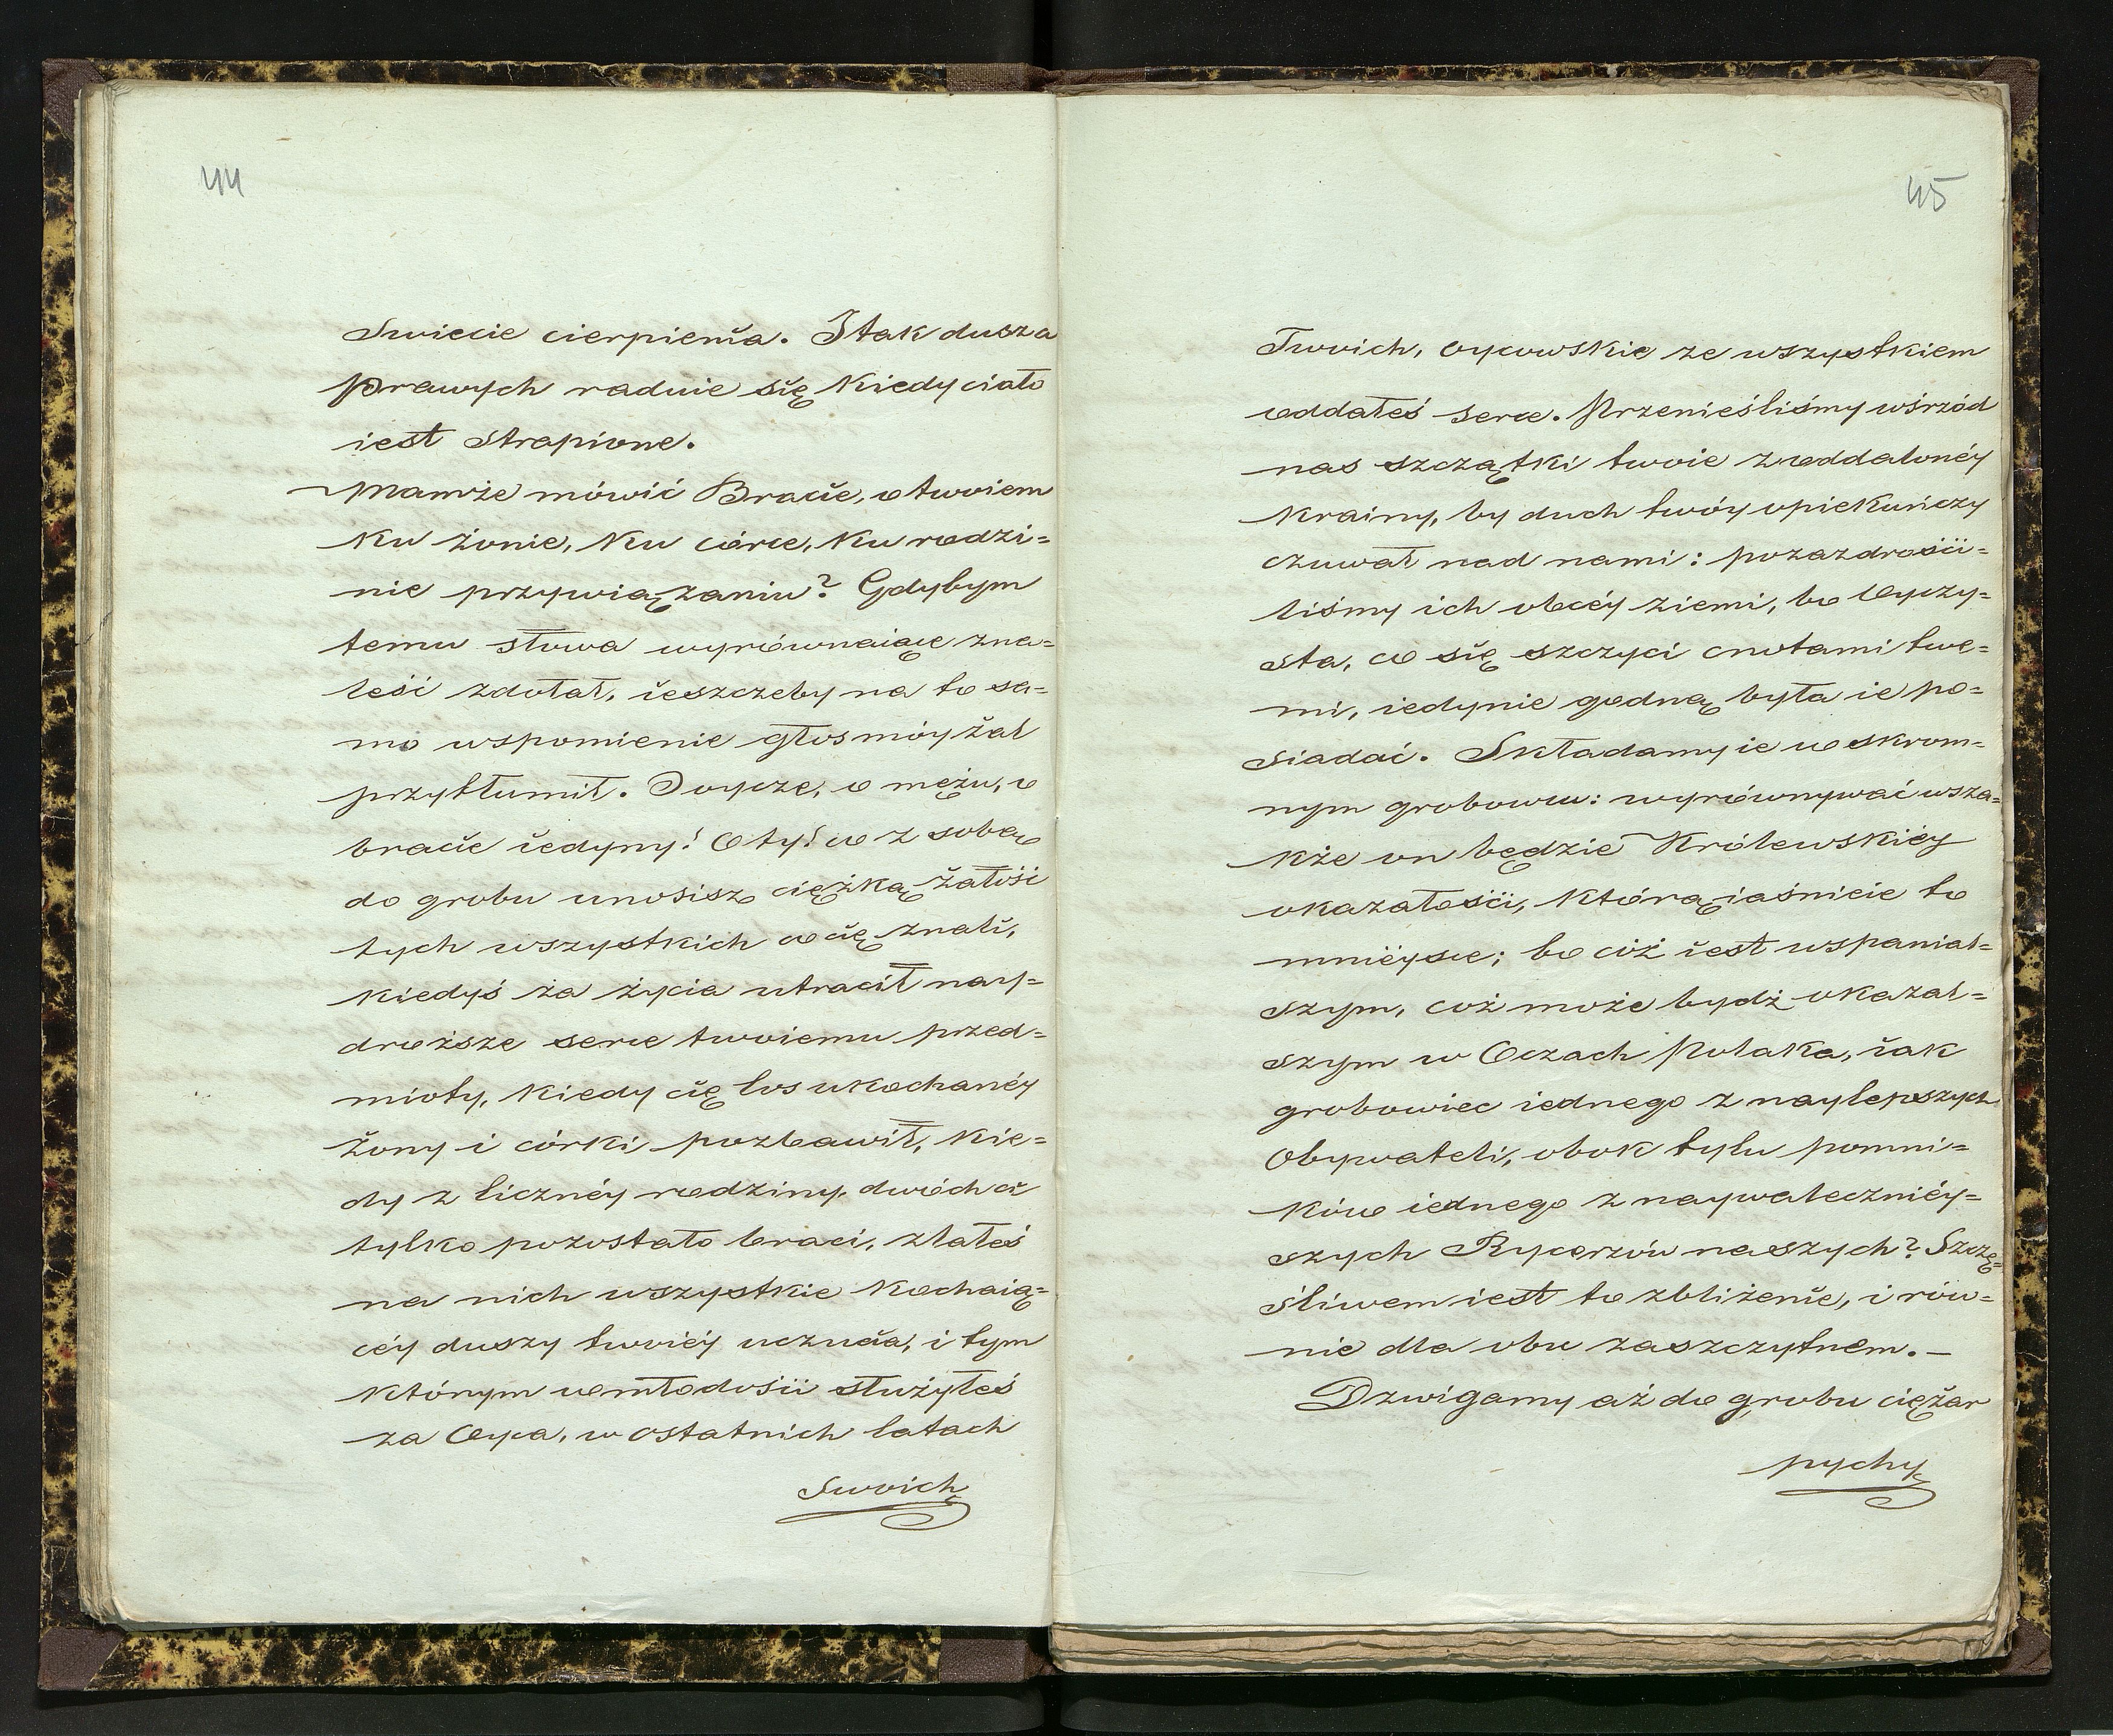 44
Swiecie cierpienia. I tak dusza
prawych raduie się kiedy ciało
iest strapione.
Mamże mówić Bracie, o twoiem
ku żonie, ku córce, ku rodzi=
nie przywiązaniu? Gdybym
temu słowa wyrównaiące zna=
leść zdołał, ieszczeby na to sa=
mo wspomienie głos móy żal
przytłumił. O oycze, o mężu, o
bracie iedyny! O ty! co z sobą
do grobu unosisz ciężką żałość
tych wszystkich co cię znali,
kiedyś za życia utracił nay=
droższe serce twoiemu przed=
mioty, kiedy cię los ukochanéy
żony i córki pozbawił, kie=
dy z licznéy rodziny dwóch ci
tylko pozostało braci, zlałeś
na nich wszystkie kochaią=
céy duszy twoiéy uczucia, i tym
którym w młodości służyłeś
za Oyca, w ostatnich latach
Swoich
45
Twoich, oycowskie ze wszystkiem
oddałeś serce. Przenieśliśmy wśrzód
nas szczątki twoie z oddalonéy
krainy, by duch twóy opiekuńczy
czuwał nad nami: pozazdrości=
liśmy ich obcéy ziemi, bo Oyczy=
sta, co się szczyci cnotami twe=
mi, iedynie godną była ie po=
siadać. Składamy ie w skrom=
nym grobowcu: wyrównywać wsza=
kże on będzie Królewskiéy
okazałości, którą iaśnieie to
mnieysce; bo cóż iest wspanial=
szym, coż może bydź okazal=
szym w Oczach Polaka, iak
grobowiec iednego z naylepszych
Obywateli, obok tylu pomni=
ków iednego z naywaleczniéy=
szych Rycerzów naszych? Szczę=
śliwem iest to zbliżenie, i rów=
nie dla obu zaszczytnem. –
Dzwigamy aż do grobu ciężar
pychy